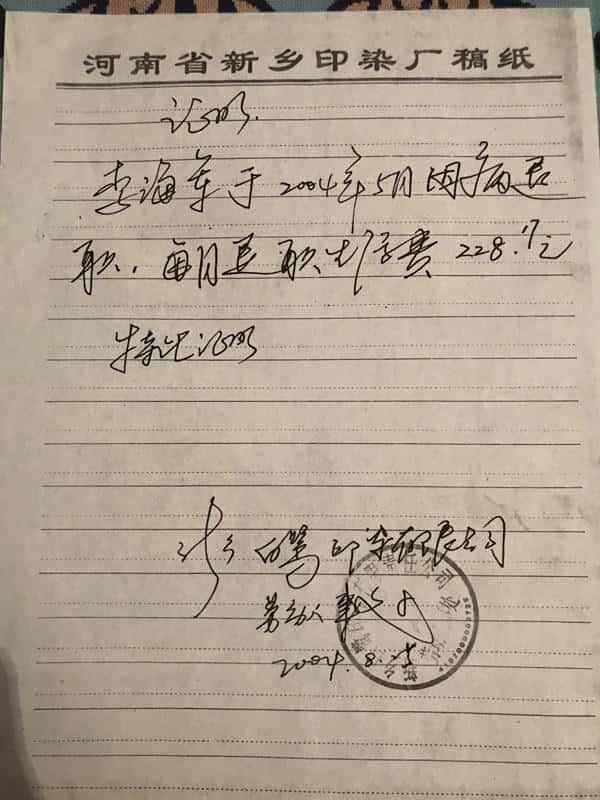 河南省新乡印染厂稿纸
证明
李海军于2004年5月因病退
职,每月退职生活费228.7元
特此证明
白鹭印染有限公司
劳动人事
2004.8.25